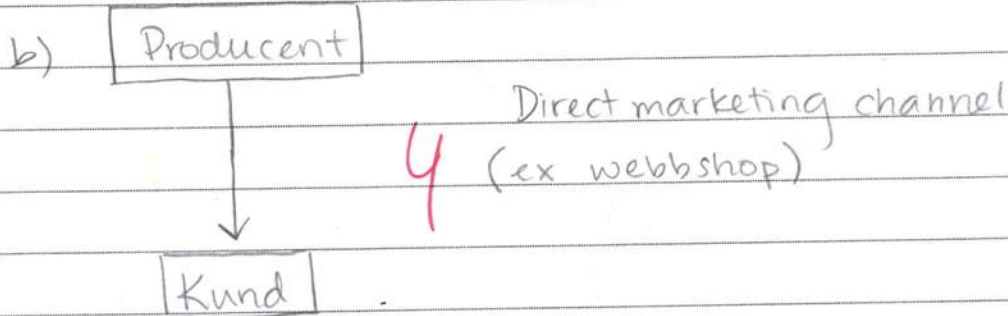 b) Producent
Direct marketing channel
4 (ex webbshop)
Kund